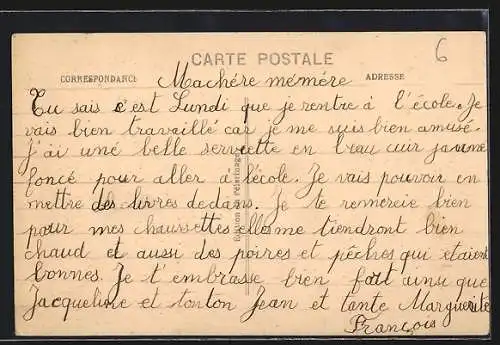 6
CARTE POSTALE
CORRESPONDANCE
ADRESSE
Machére mémére
Tu sais c'est Lundi que je rentre à l'école. Je
vais bien travaillé car je me suis bien amusé.
J'ai uné belle serviette en beau cuir jaune
foncé pour aller à l'école. Je vais pouvoir en
mettre des livres dedans. Je te remercie bien
pour mes chaussettes elles me tiendront bien
chaud et aussi des poires et pêches qui etaient
bonnes. Je t'embrasse bien fort ainsi que
Jacqueline et tonton Jean et tante Marguerite
François